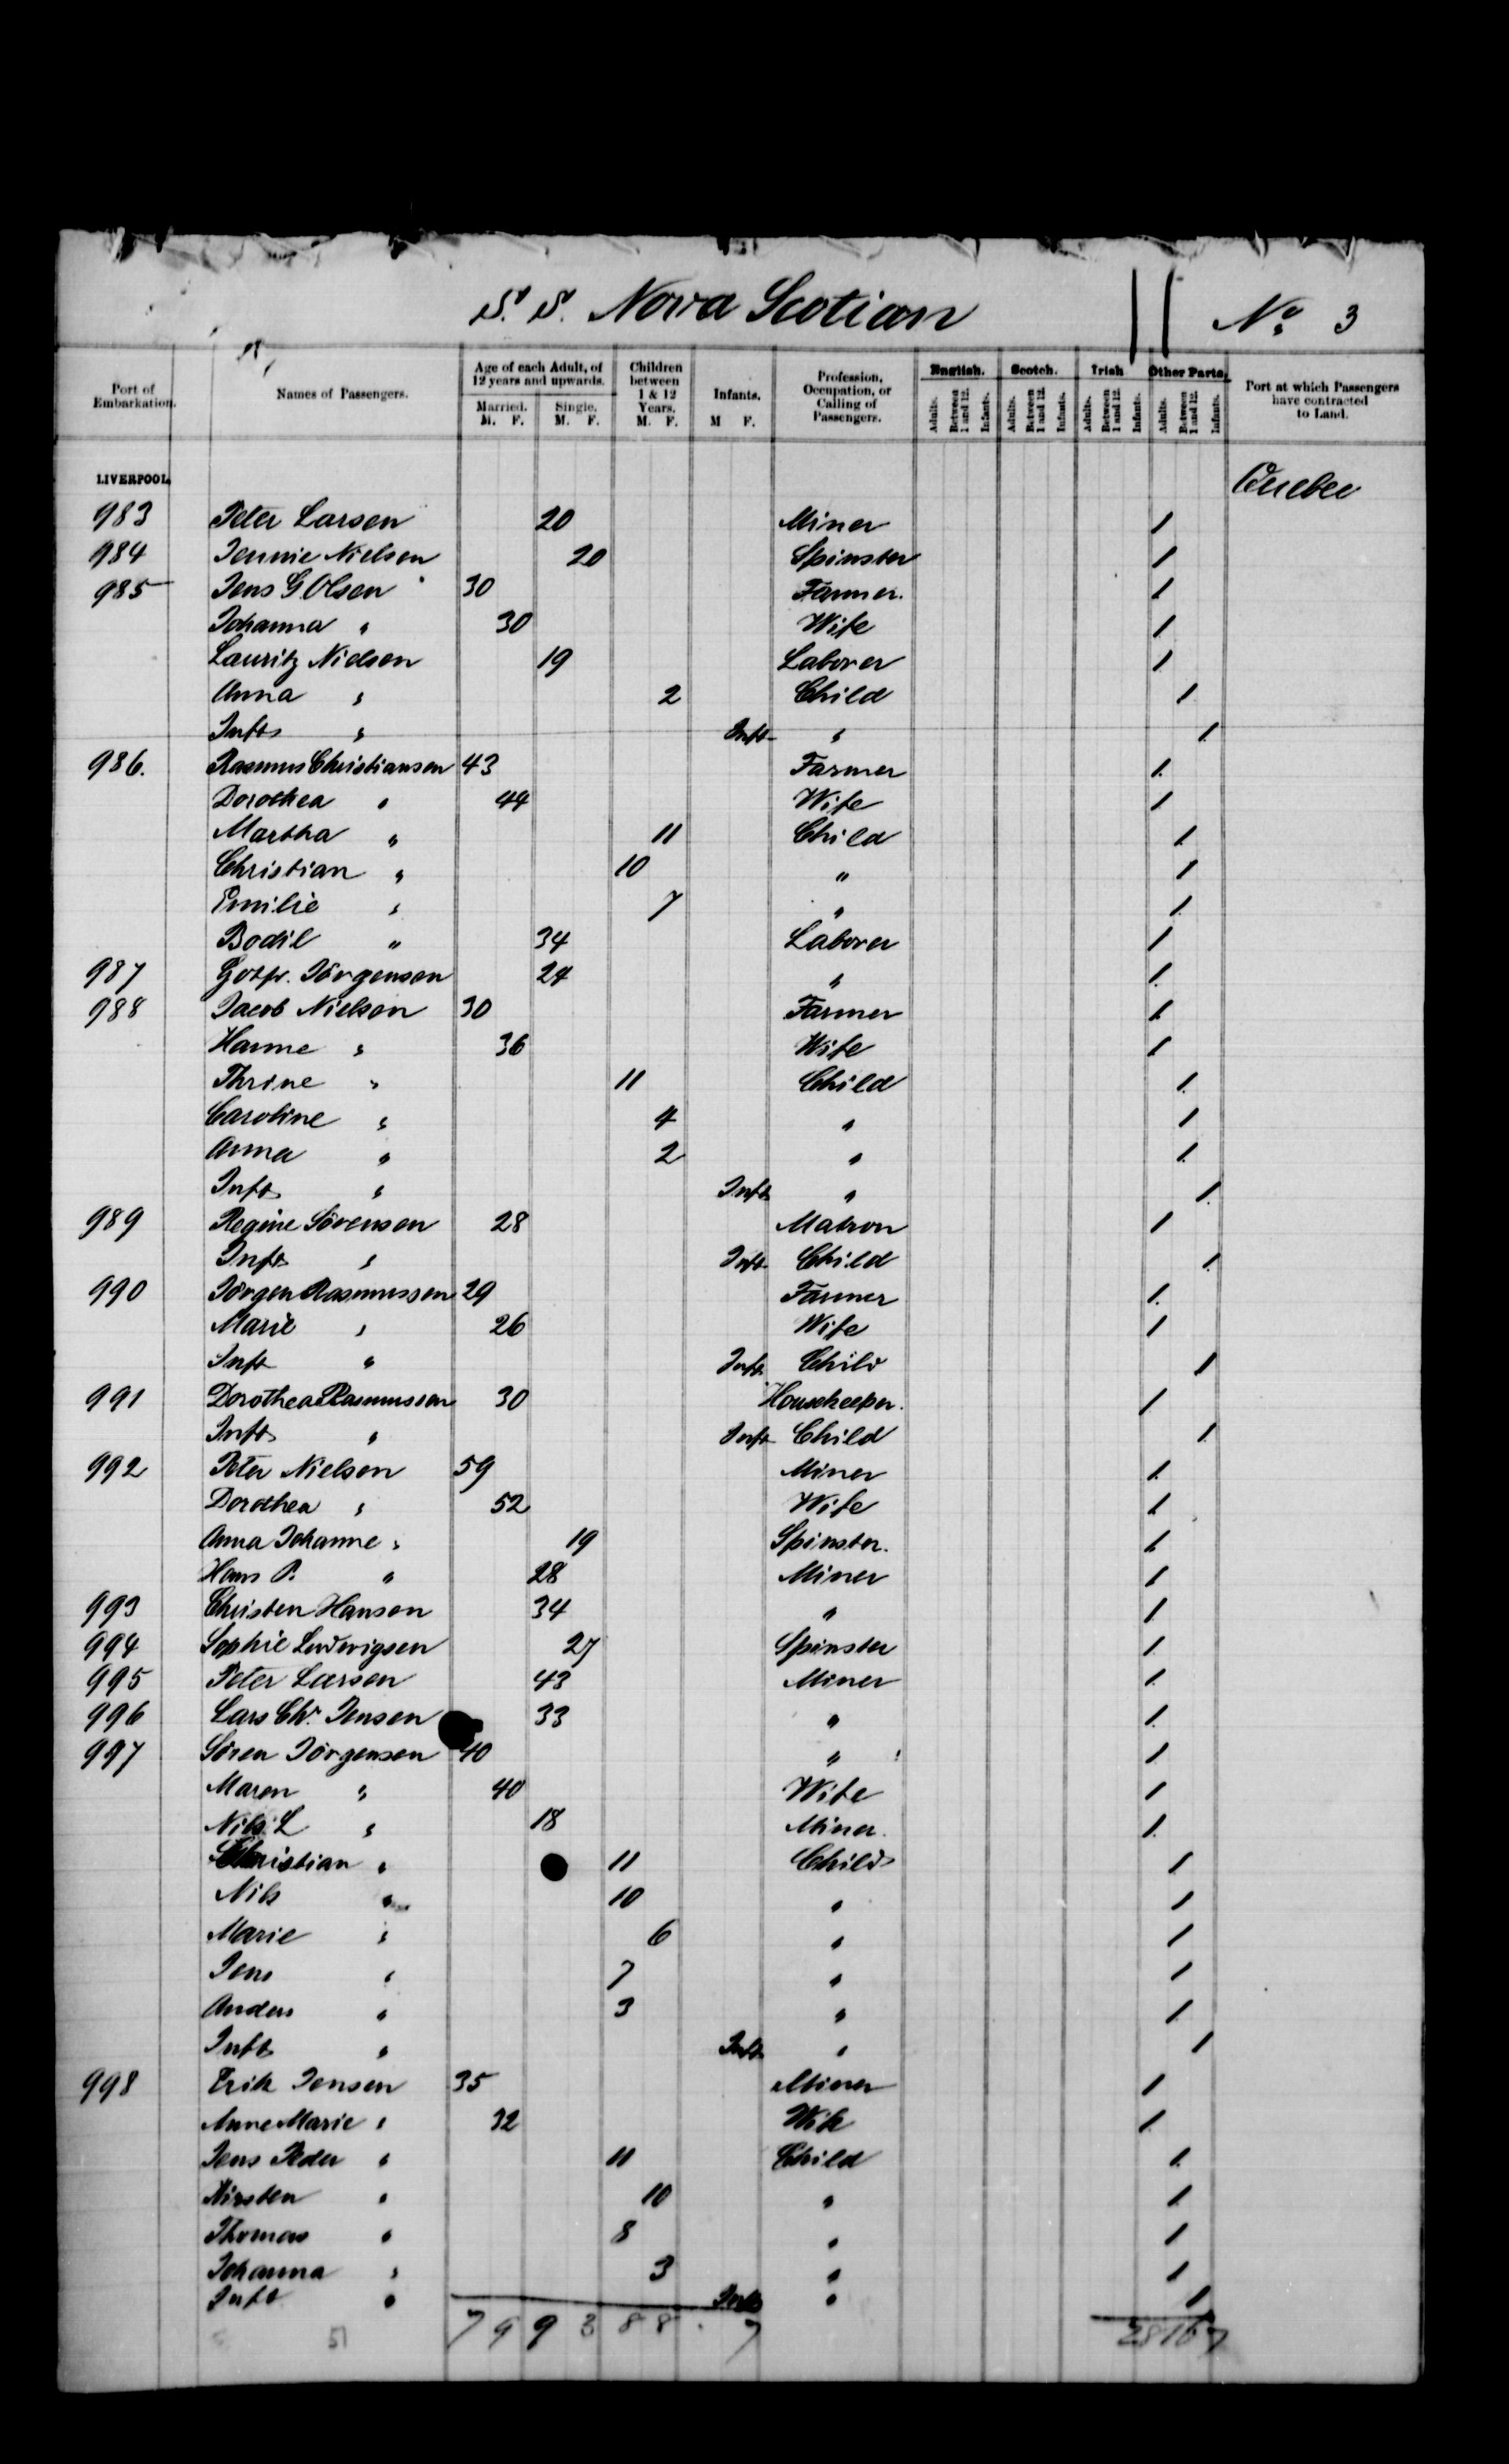 S. S. Nova Scotian No. 3
Port of Embarkation. Names of Passengers. Age of each Adult, of 12 years and upwards. Children between 1 & 12 Years. Infants. Profession, Occupation, or Calling of Passengers. English. Scotch. Irish Other Parts. Port at which Passengers have contracted to Land.
Married. Single.
M. F. M. F. M. F. M F. Adults. Between 1 and 12. Infants. Adults. Between 1 and 12. Infants. Adults. Between 1 and 12. Infants. Adults. Between 1 and 12. Infants.
LIVERPOOL Quebec
983 Peter Larsen 20 Miner 1
984 Jennie Nielsen 20 Spinster 1
985 Jens G Olsen 30 Farmer. 1
Johanna " 30 Wife 1
Lauritz Nielsen 19 Laborer 1
Anna " 2 Child 1
Inft " Inft " 1
986. Rasmus Christiansen 43 Farmer 1
Dorothea " 44 Wife 1
Martha " 11 Child 1
Christian " 10 " 1
Emilie " 7 " 1
Bodil " 34 Laborer 1
987 Gotfr. Jörgensen 24 " 1
988 Jacob Nielsen 30 Farmer 1
Hanne " 36 Wife 1
Thrine " 11 Child 1
Caroline " 4 " 1
Anna " 2 " 1
Inft " Inft " 1
989 Regine Sörensen 28 Matron 1
Inft " Inft Child 1
990 Jörgen Rasmussen 29 Farmer 1
Marie " 26 Wife 1
Inft " Inft Child 1
991 Dorothea Rasmussen 30 Housekeeper. 1
Inft " Inft Child 1
992 Peter Nielsen 59 Miner 1
Dorothea " 52 Wife 1
Anna Johanne " 19 Spinster. 1
Hans P. " 28 Miner 1
993 Christen Hansen 34 " 1
994 Sophie Ludvigsen 27 Spinster 1
995 Peter Larsen 43 Miner 1
996 Lars Chr. Jensen 33 " 1
997 Sören Jörgensen 40 " 1
Maren " 40 Wife 1
Nils L " 18 Miner. 1
Christian " 11 Child 1
Nils " 10 " 1
Marie " 6 " 1
Jens " 7 " 1
Anders " 3 " 1
Inft " Inft " 1
998 Erik Jensen 35 Miner 1
Anne Marie " 32 Wife 1
Jens Peder " 11 Child 1
Kirsten " 10 " 1
Thomas " 8 " 1
Johanna " 3 " 1
Inft " Inft " 1
51 7 9 9 3 8 8 7 28 16 7